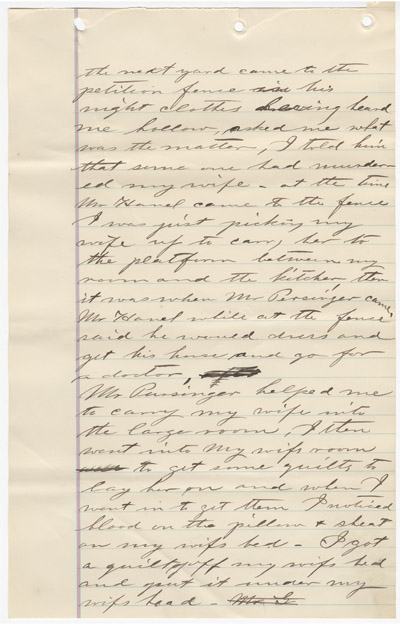 the next yard came to the
petition fence in his
night clothes heeing heard
me hollow, asked me what
was the matter, I told him
that some one had murder-
ed my wife - at the time
Mr Hanel came to the fence
I was just picking my
wife up to carry her to
the platform between my
room and the kitchen, then
it was when Mr Persinger came,
Mr Hanel while at the fence
said he would dress and
get his horse and go for
a doctor,
Mr Persinger helped me
to carry my wife into
the large room, I then
went into my wifs room
to get some quilts to
lay her on and when I
went in to get them I notised
blood on the pillow & sheat
on my wifs bed - I got
a quilt off my wifs bed
and put it under my
wifs head - Mr G